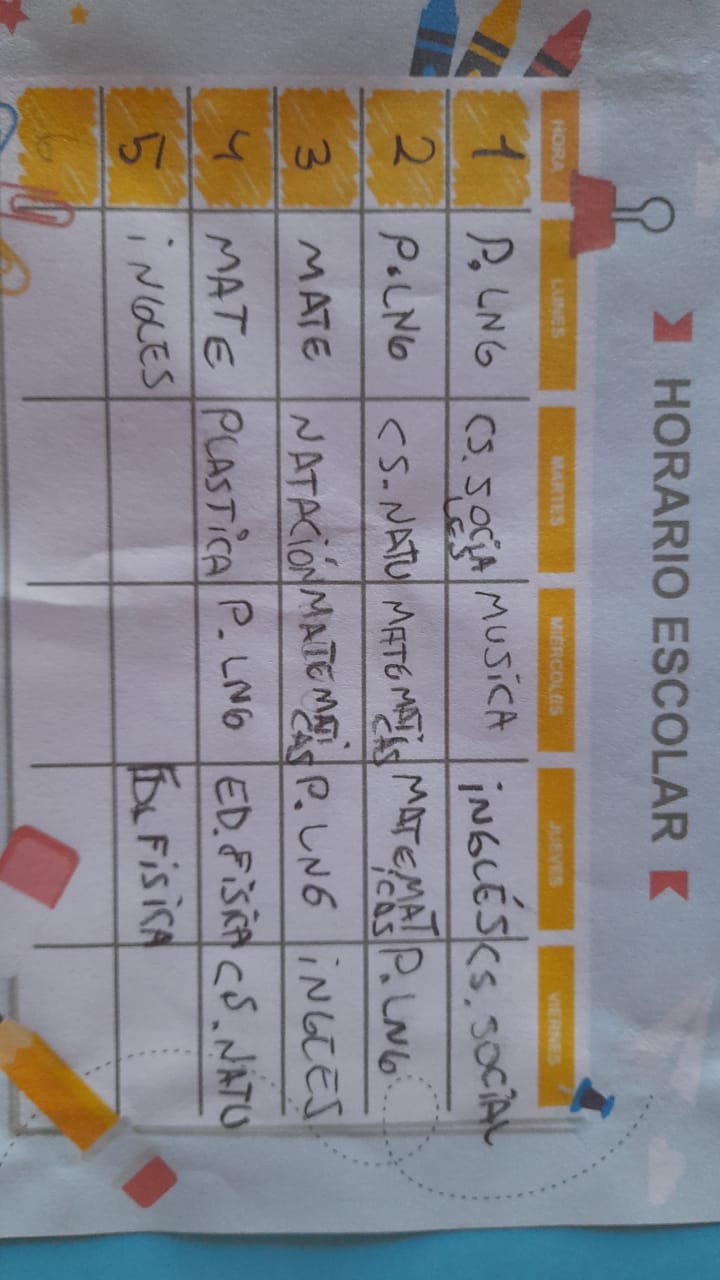 HORARIO ESCOLAR
HORA LUNES MARTES MIÉRCOLES JUEVES VIERNES
1 P. LNG CS. SOCIALES MUSICA INGLÉS CS. SOCIAL
2 P. LNG CS. NATU MATEMATICAS MATEMATICAS P. LNG
3 MATE NATACIÓN MATEMATICAS P. LNG INGLES
4 MATE PLASTICA P. LNG ED. FISICA CS. NATU
5 INGLES FISICA
6